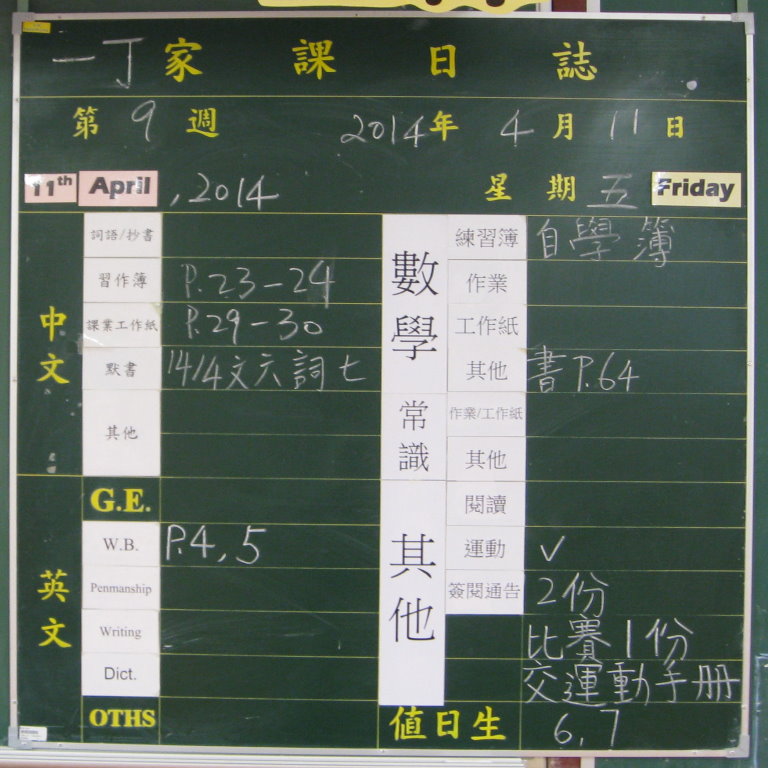 一丁家課日誌
第9週 2014年4月11日
11th April, 2014 星期五 Friday
中文
詞語/抄書
習作簿 P.23-24
課業工作紙 P.29-30
默書 14/4文六詞七
其他
英文
G.E.
W.B. P.4,5
Penmanship
Writing
Dict.
OTHS
數學
練習簿 自學簿
作業
工作紙
其他 書P.64
常識
作業/工作紙
其他
其他
閱讀
運動 ✓
簽閱通告 2份
比賽1份
交運動手册
值日生 6,7